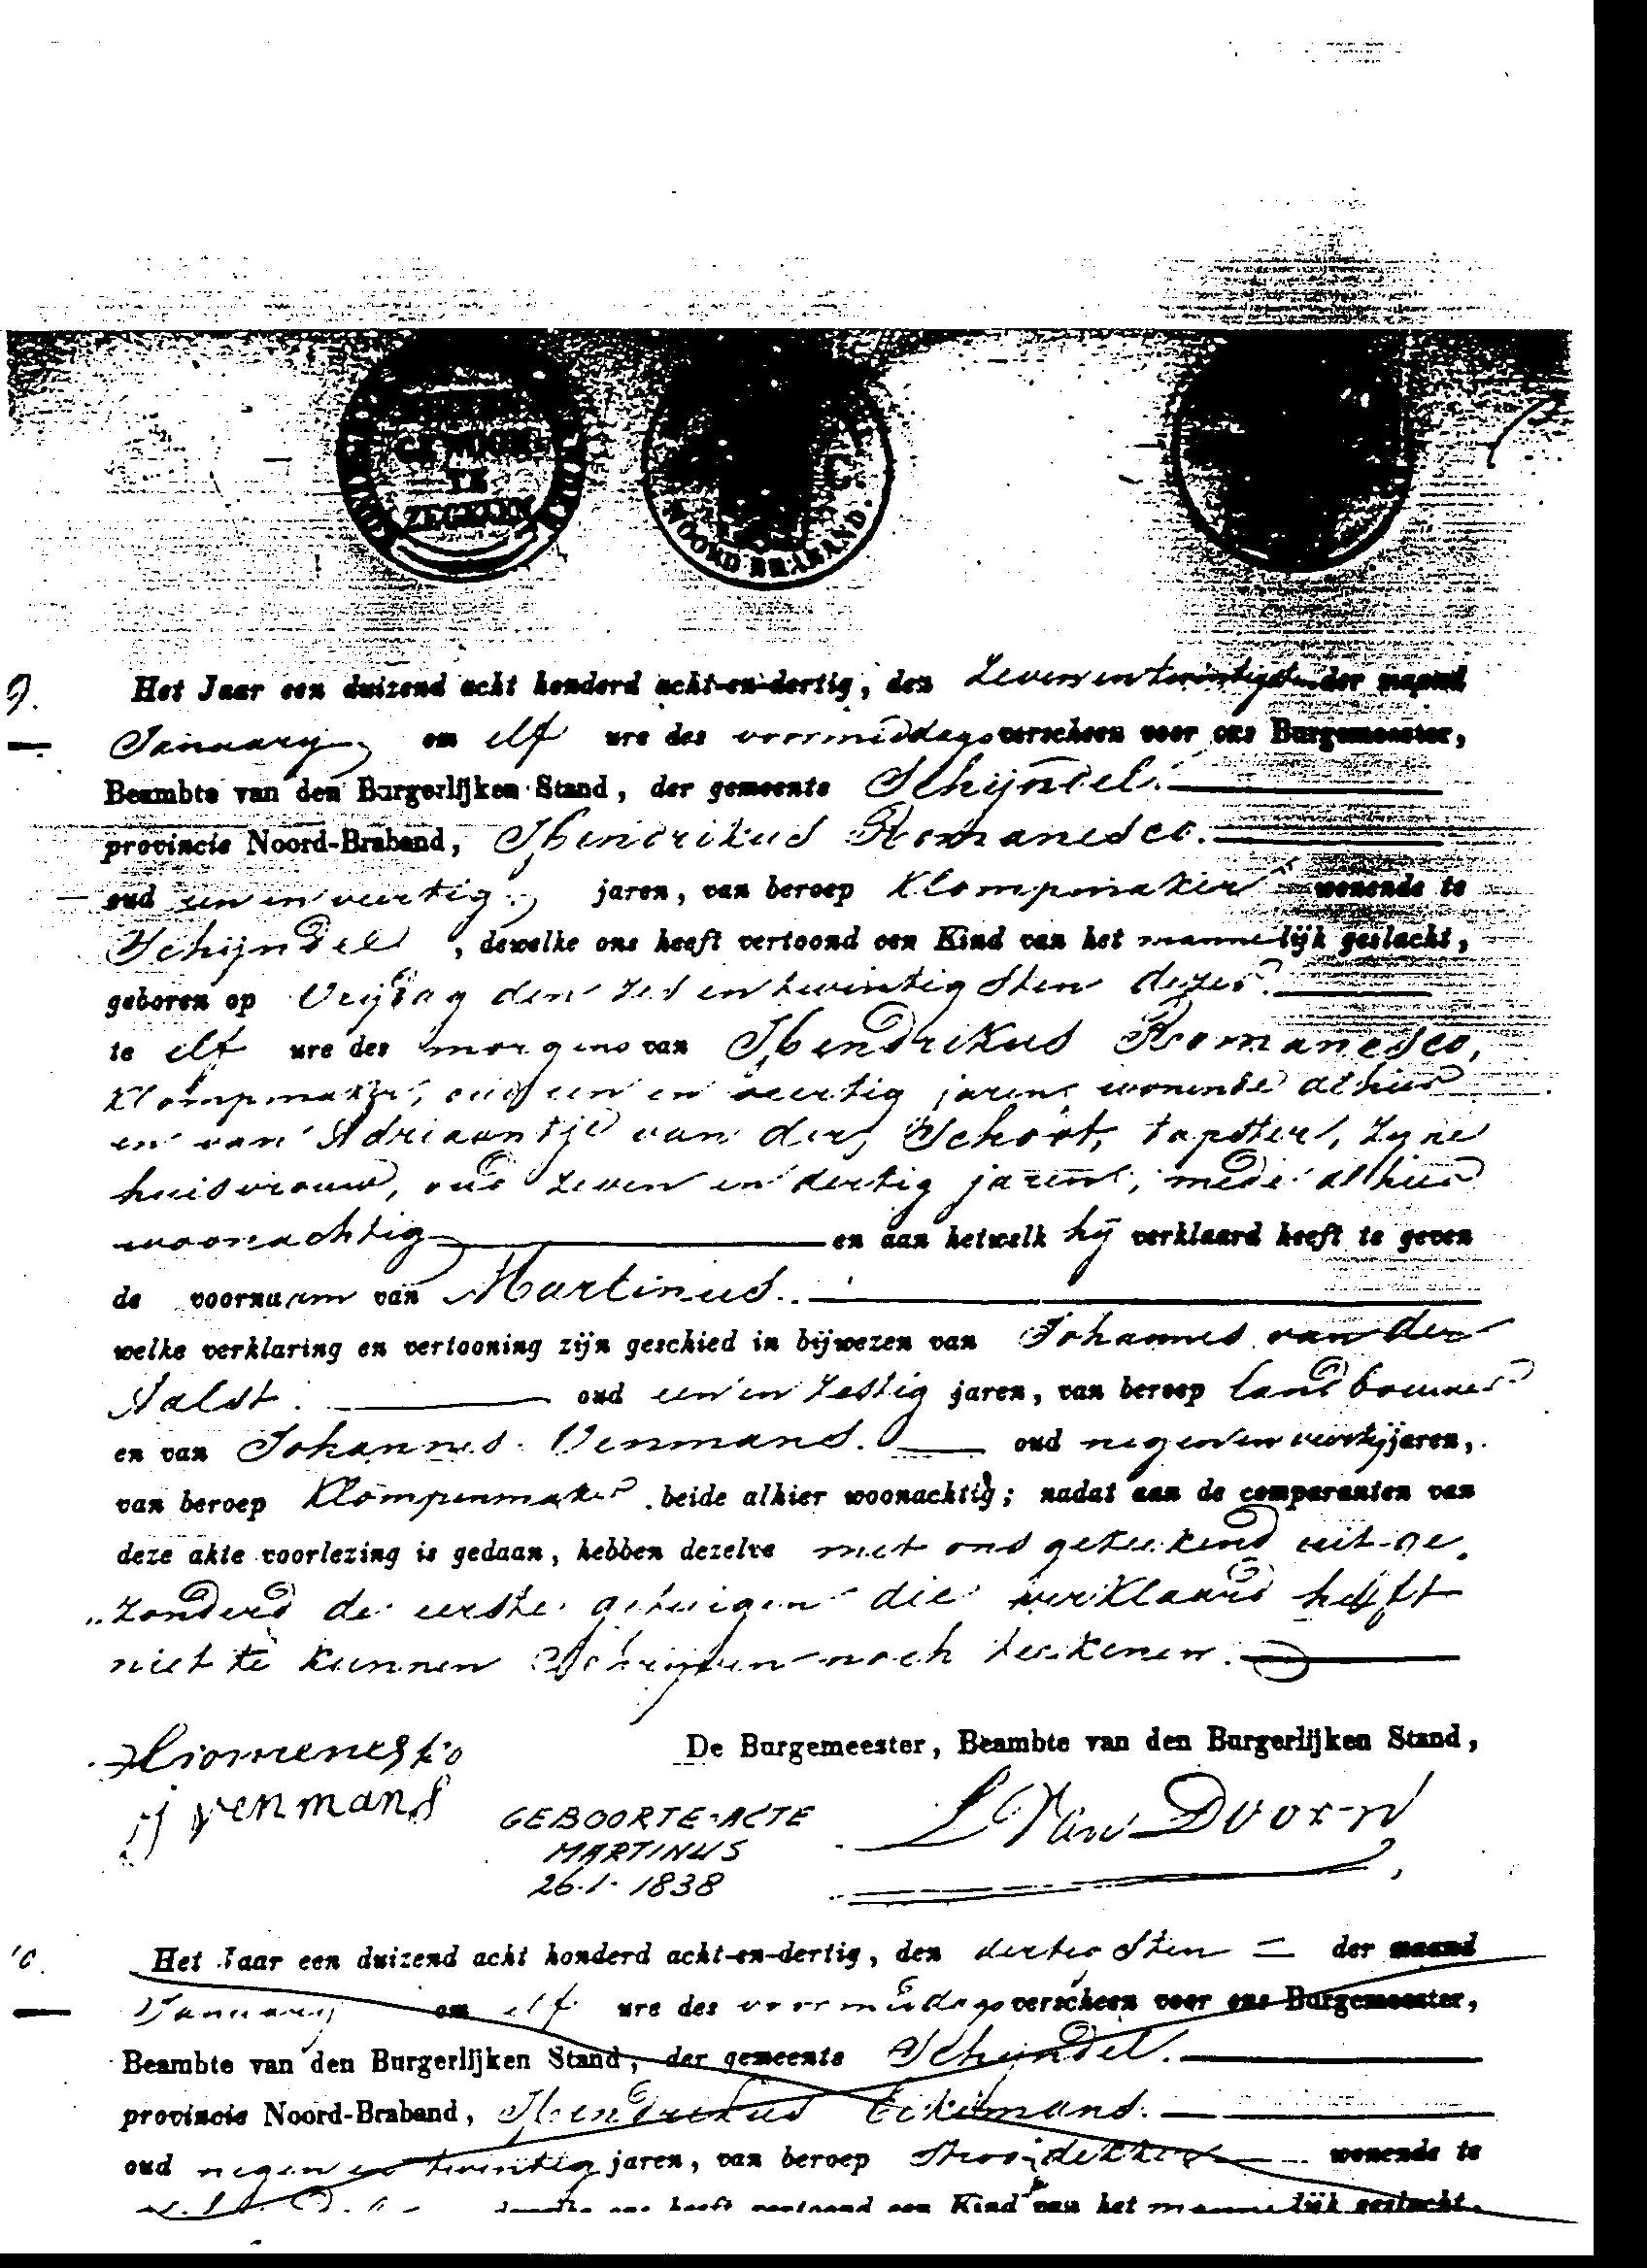 GEWOON
TE
ZEGELEN
NOORD BRABAND.
9. Het Jaar een duizend acht honderd acht-en-dertig, den zevenentwintigsten der maand
January om elf ure des voormiddags verscheen voor ons Burgemeester,
Beambte van den Burgerlijken Stand, der gemeente Schijndel.
provincie Noord-Braband, Hendrikus Romanesco.
oud een en veertig jaren, van beroep Klompmaker wonende te
Schijndel, dewelke ons heeft vertoond een Kind van het mannelijk geslacht,
geboren op Vrijdag den zes en twintigsten dezer.
te elf ure des morgens van Hendrikus Romanesco,
Klompmaker, oud een en veertig jaren, wonende alhier
en van Adriaantje van der Schoot, tapster, zyne
huisvrouw, oud zeven en dertig jaren, mede alhier
woonachtig en aan hetwelk hij verklaard heeft te geven
de voornaam van Martinus.
welke verklaring en vertooning zijn geschied in bijwezen van Johannes van der
Aalst. oud een en zestig jaren, van beroep landbouwer
en van Johannes Venmans. oud negen en veertig jaren,
van beroep Klompenmaker beide alhier woonachtig; nadat aan de comparanten van
deze akte voorlezing is gedaan, hebben dezelve met ons geteekend uitge„
„zonderd de eerste getuigen die verklaard heeft
niet te kunnen schrijven noch teekenen.
De Burgemeester, Beambte van den Burgerlijken Stand,
j venmans
L Van Doorn
GEBOORTE-ACTE
MARTINUS
26.1.1838
10. Het Jaar een duizend acht honderd acht-en-dertig, den dertigsten der maand
January om elf ure des voormiddags verscheen voor ons Burgemeester,
Beambte van den Burgerlijken Stand, der gemeente Schijndel.
provincie Noord-Braband, Hendrikus
oud negen en twintig jaren, van beroep Strooidekker wonende te
dewelke ons heeft vertoond een Kind van het mannelijk geslacht,